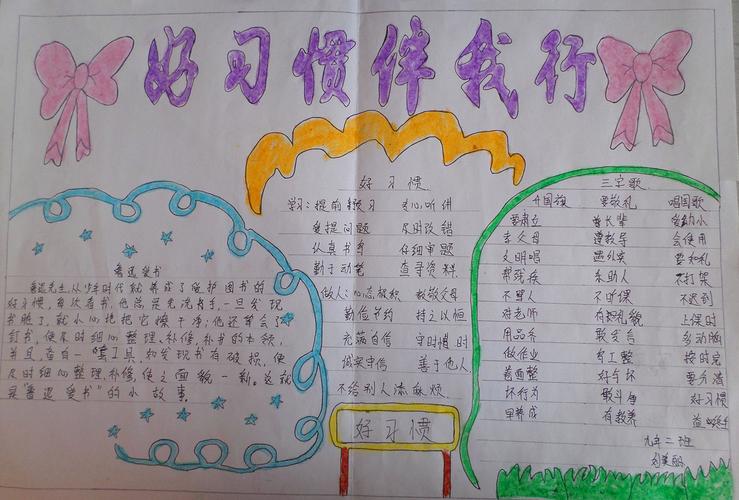 好习惯伴我行
鲁迅爱书
鲁迅先生,从少年时代就养成了爱护图书的
好习惯,每次看书,他总是先洗手,一旦发现
书脏了,就小心地把它擦干净;他还学会了
订书,使及时细心整理、补修、补书的本领,
并且,备有一套工具,如发现书有破损,便
及时细心整理、补修,使之面貌一新。这就
是“鲁迅爱书”的小故事。
好习惯
学习:提前预习 专心听讲
爱提问题 及时改错
认真书写 仔细审题
勤于动笔 查寻资料
做人:心态积极 孝敬父母
勤俭节约 持之以恒
充满自信 守时惜时
诚实守信 善于他人
不给别人添麻烦
好习惯
三字歌
升国旗 要敬礼 唱国歌
要肃立 尊长辈 爱幼小
孝父母 遵教导 会使用
文明唱 遇外宾 要和礼
帮残疾 乐助人 不打架
不骂人 不旷课 不迟到
对老师 有礼貌 上课时
用品齐 敢发言 多动脑
做作业 按时完
画面整 好与坏 要分清
坏行为 敢斗争 好习惯
早养成 有教养 益终生
九年二班